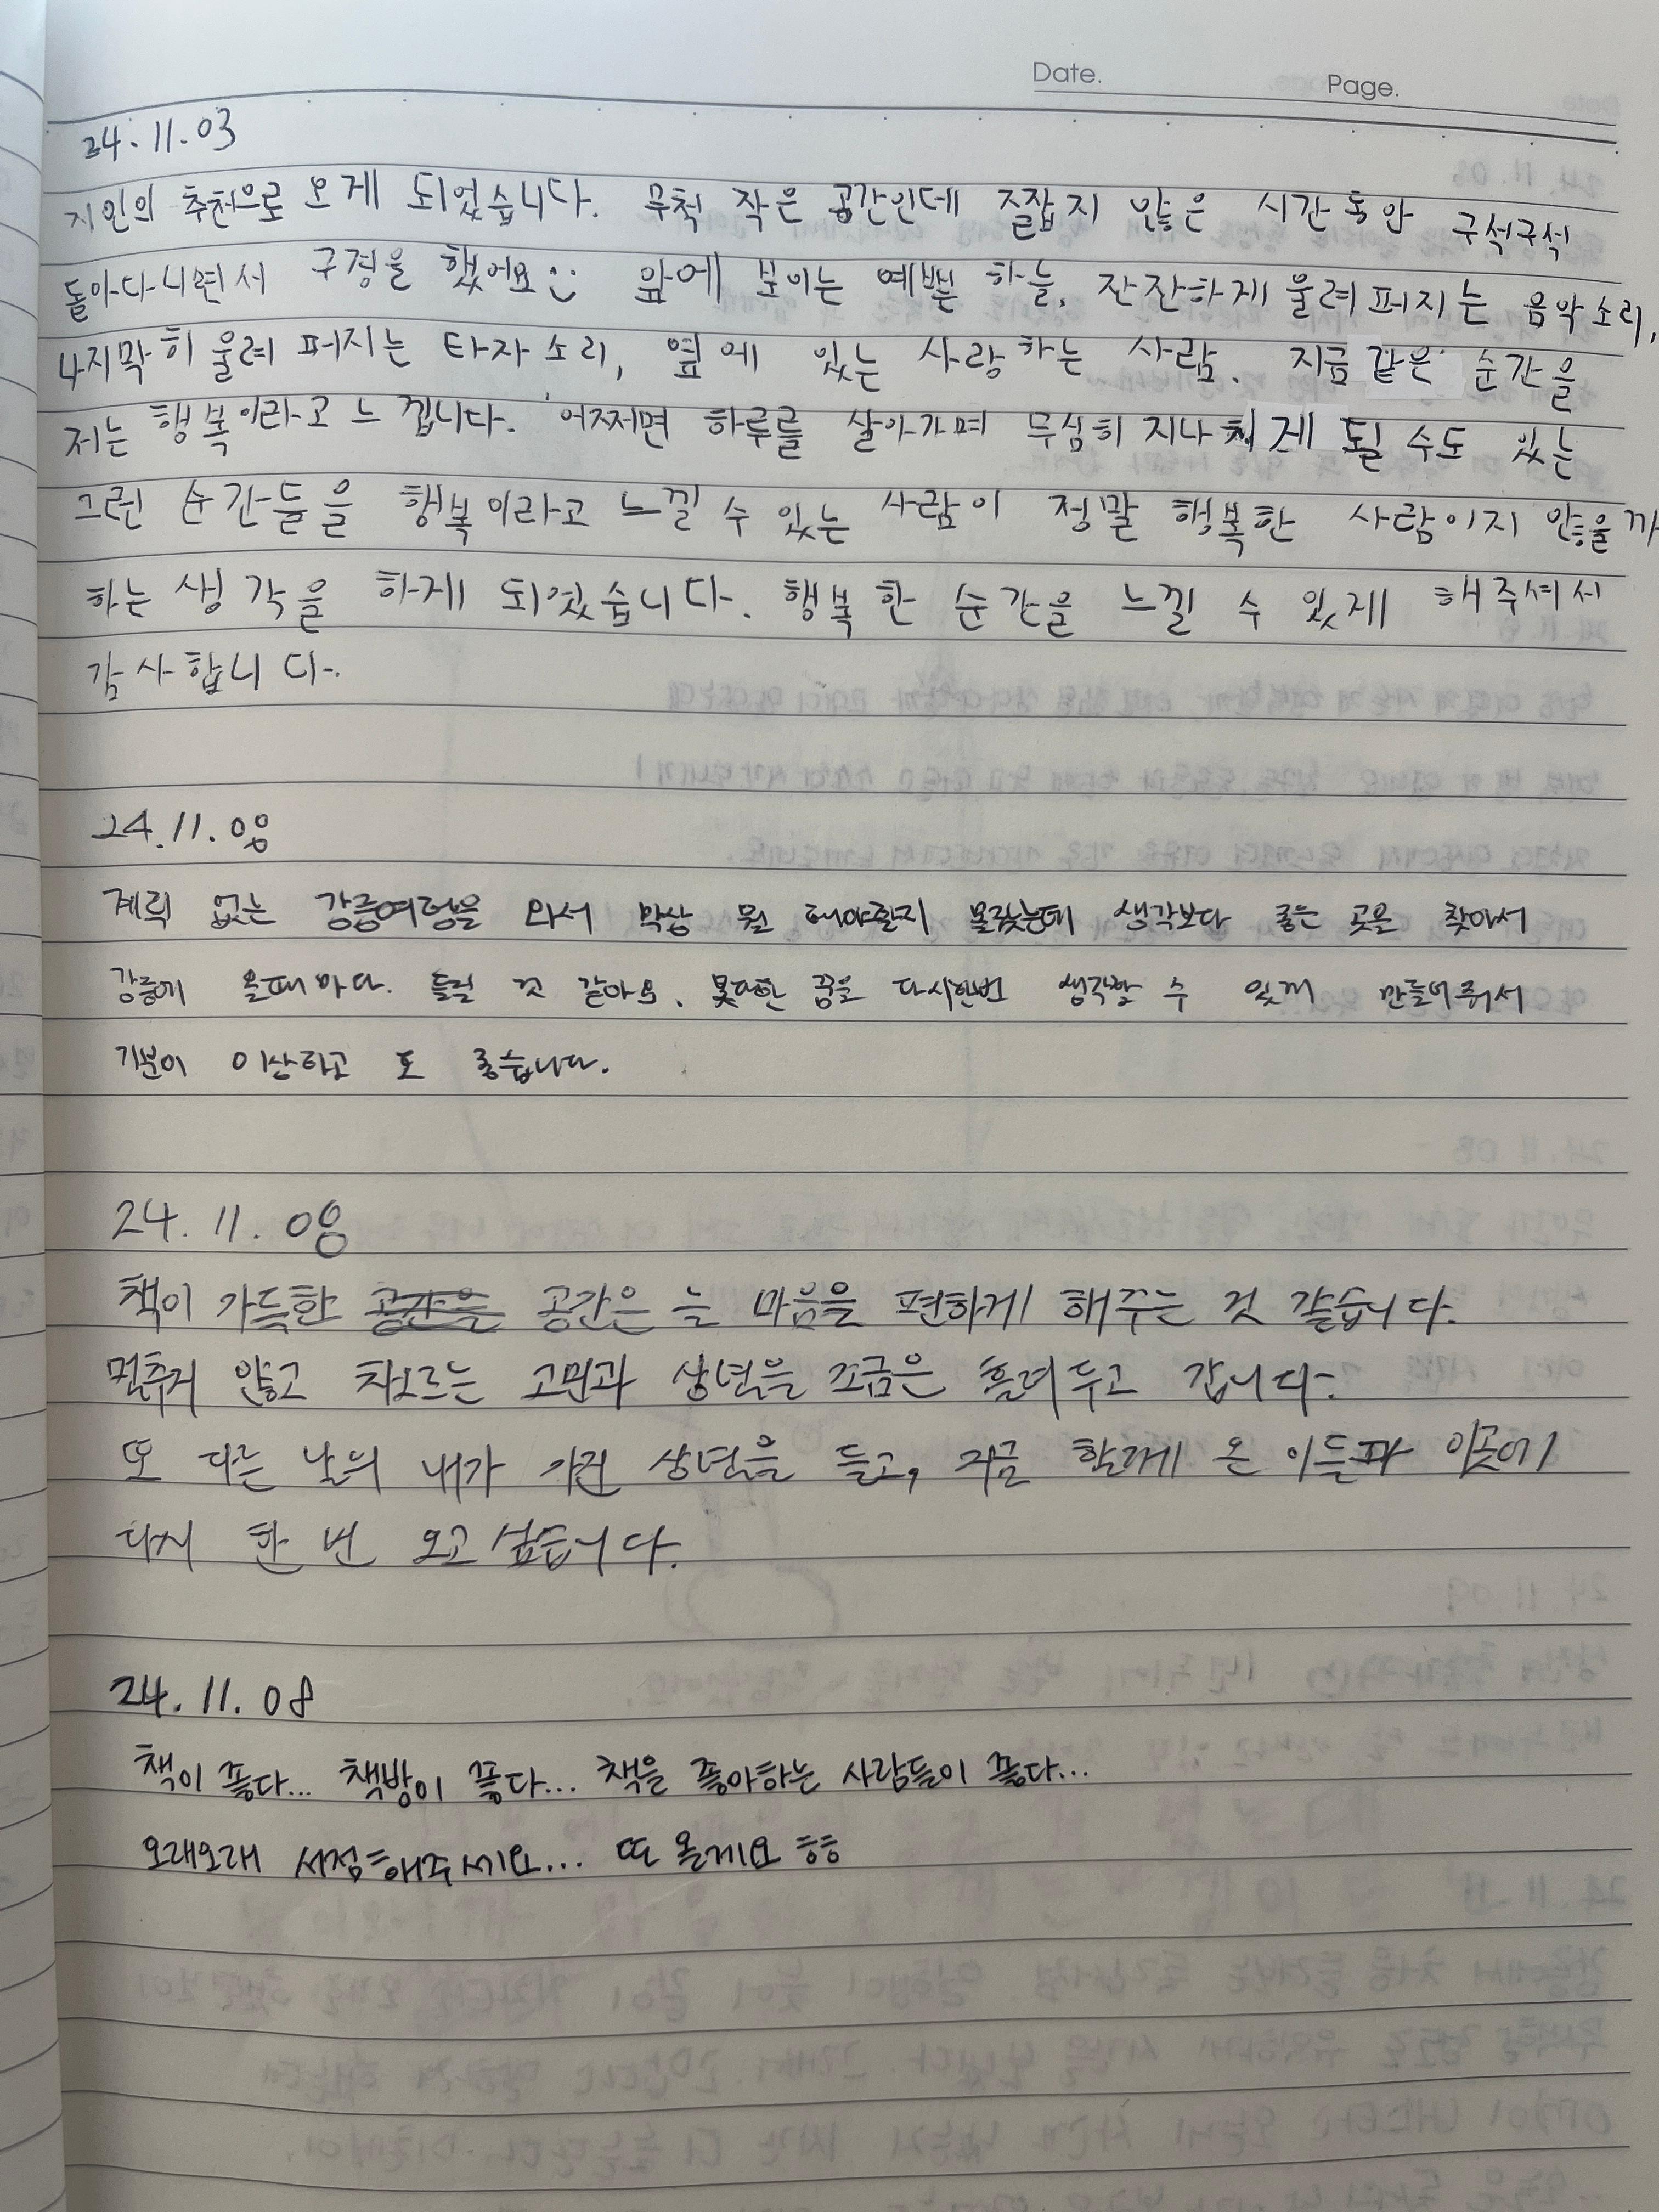 Date. Page.
24.11.03
지인의 추천으로 오게 되었습니다. 무척 작은 공간인데 짧잡지 않은 시간동안 구석구석
돌아다니면서 구경을 했어요:) 앞에 보이는 예쁜 하늘, 잔잔하게 울려퍼지는 음악소리,
나지막히 울려 퍼지는 타자소리, 옆에 있는 사랑하는 사람. 지금 같은 순간을
저는 행복이라고 느낍니다. 어쩌면 하루를 살아가며 무심히 지나치게 될 수도 있는
그런 순간들을 행복이라고 느낄 수 있는 사람이 정말 행복한 사람이지 않을까
하는 생각을 하게 되었습니다. 행복한 순간을 느낄 수 있게 해주셔서
감사합니다.
24.11.08
계획 없는 강릉여행을 와서 막상 뭘 해야할지 몰랐는데 생각보다 좋은 곳을 찾아서
강릉에 올때마다. 들릴 것 같아요. 못다한 꿈을 다시한번 생각할 수 있께 만들어줘서
기분이 이상하고 또 좋습니다.
24.11.08
책이 가득한 공간을 공간은 늘 마음을 편하게 해주는 것 같습니다.
멈추지 않고 차오르는 고민과 상념을 조금은 흘려두고 갑니다.
또 다른 날의 내가 가진 상념을 들고, 지금 함께 온 이들과 이곳에
다시 한 번 오고싶습니다.
24.11.08
책이 좋다... 책방이 좋다... 책을 좋아하는 사람들이 좋다...
오래오래 서점해주세요... 또 올게요 ㅎㅎ